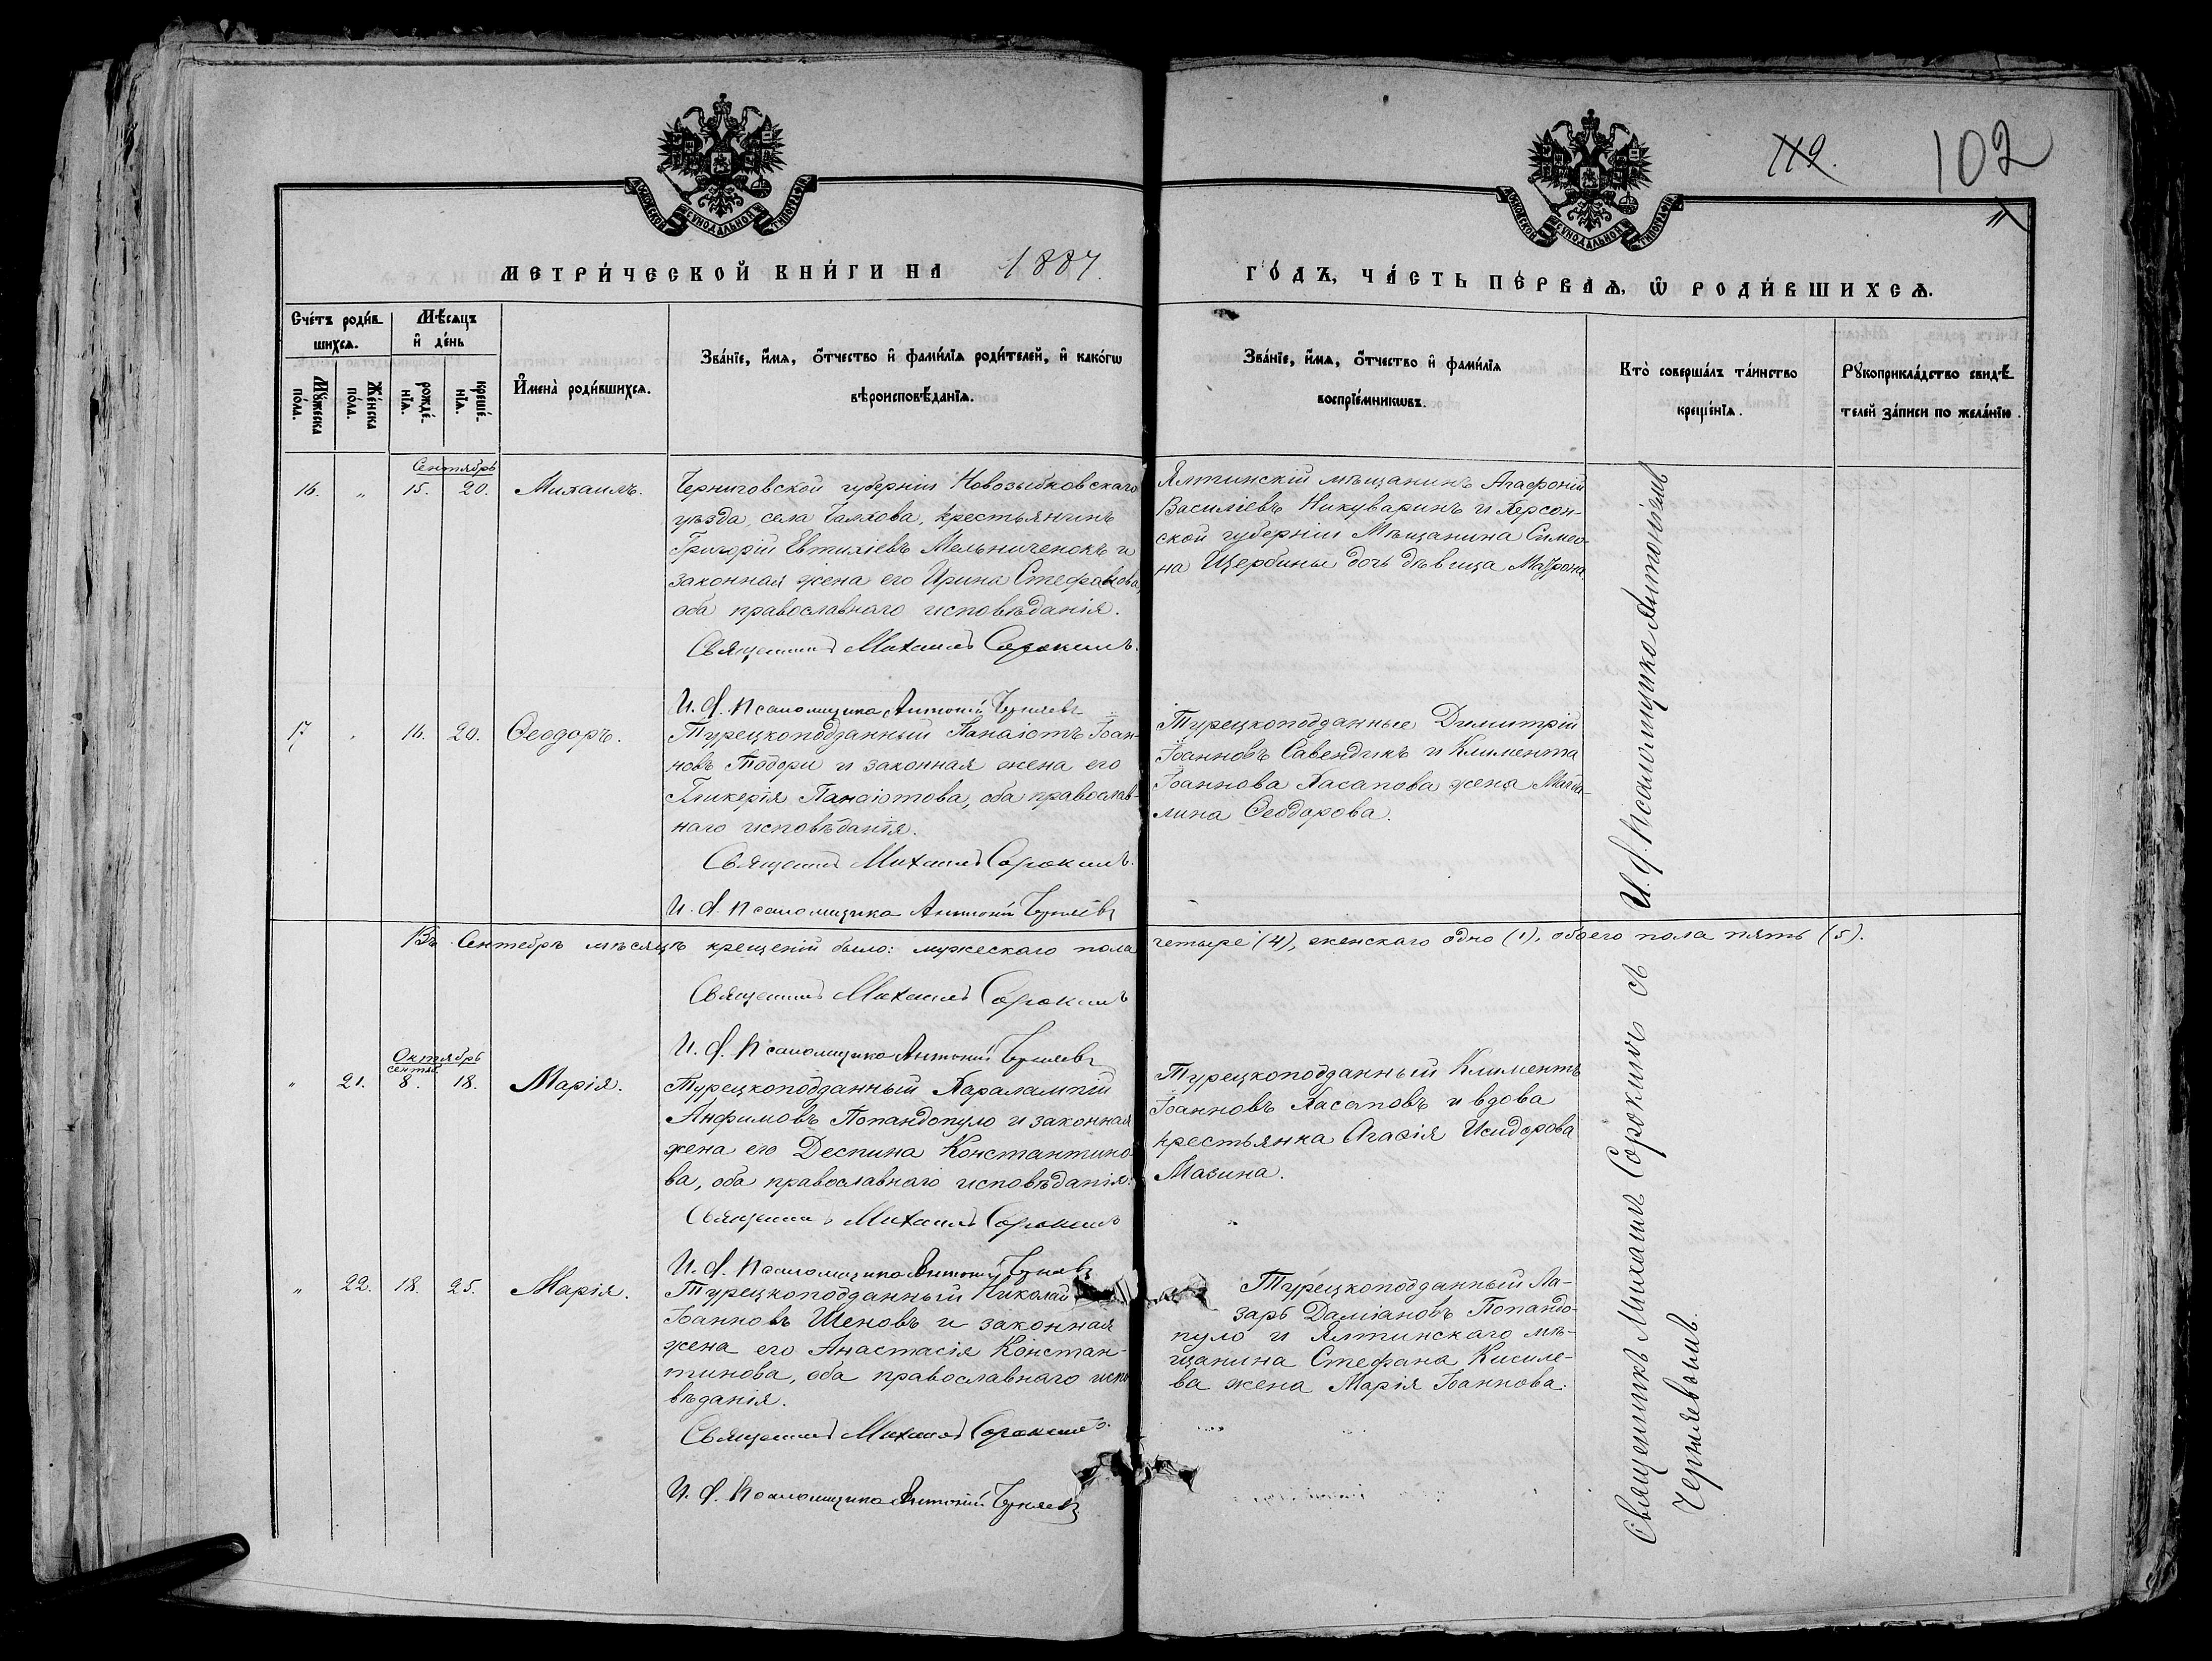 112.
102
МОСКОВСКОЙ СѴНОДАЛЬНОЙ ТИПОГРАФІИ
МОСКОВСКОЙ СѴНОДАЛЬНОЙ ТИПОГРАФІИ
МЕТРИ́ЧЕСКОЙ КНИ́ГИ НА 1887.
ГО́ДЪ, ЧА́СТЬ ПЕ́РВАѦ, Ѽ РОДИ́ВШИХСѦ.
Сче́тъ роди́в-
шихсѧ.
Мѣ́сѧцъ
и҆ де́нь
Мꙋ́жеска
по́ла.
Же́нска
по́ла.
рожде́-
нїѧ.
креще́-
нїѧ.
И҆мена̀ роди́вшихсѧ.
Зва́нїе, и҆́мѧ, ѻ҆́тчество и҆ фами́лїѧ роди́телей, и҆ како́гѡ
вѣроисповѣ́данїѧ.
Зва́нїе, и҆́мѧ, ѻ҆́тчество и҆ фами́лїѧ
воспрїе́мникѡвъ.
Кто̀ соверша́лъ та́инство
креще́нїѧ.
Рꙋкоприкла́дство свидѣ́-
телей за́писи по жела́нїю.
Сентябрь
16. „ 15. 20. Михаилъ.
Черниговской губерніи Новозыбковскаго
уѣзда, села Чалхова, крестьянинъ
Григорій Евтихіевъ Мельниченокъ и
законная жена его Ирина Стефанова,
оба православнаго исповѣданія.
Священникъ Михаилъ Сорокинъ.
И. д. псаломщика Антоній Черняевъ
Ялтинскій мѣщанинъ Агафоній
Василіевъ Никуваринъ и Херсон-
ской губерніи Мѣщанина Симео-
на Щербины дочь дѣвица Матрона
17 „ 16. 20. Ѳеодоръ.
Турецкоподданный Панаіотъ Іоан-
новъ Тодори и законная жена его
Гликерія Панаіотова, оба православ-
наго исповѣданія.
Священникъ Михаилъ Сорокинъ.
И. д. псаломщика Антоній Черняевъ
Турецкоподданные Димитрій
Іоанновъ Савендикъ и Климента
Іоаннова Хасапова жена Магда-
лина Ѳеодорова.
Въ Сентябрѣ мѣсяцѣ крещеній было: мужескаго пола четыре (4), женскаго одно (1), обоего пола пять (5).
Священникъ Михаилъ Сорокинъ
И. д. псаломщика Антоній Черняевъ
Октябрь
сентяб.
„ 21. 8. 18. Марія.
Турецкоподданный Харалампій
Анфимовъ Попандопуло и законная
жена его Деспина Константино-
ва, оба православнаго исповѣданія.
Священникъ Михаилъ Сорокинъ
И. д. псаломщика Антоній Черняевъ
Турецкоподданный Климентъ
Іоанновъ Хасаповъ и вдова
крестьянка Агафія Исидорова
Мазина.
„ 22. 18. 25. Марія.
Турецкоподданный Николай
Іоанновъ Шеновъ и законная
жена его Анастасія Констан-
тинова, оба православнаго испо-
вѣданія.
Священникъ Михаилъ Сорокинъ.
И. д. псаломщика Антоній Черняевъ
Турецкоподданный Ла-
зарь Даміановъ Попандо-
пуло и Ялтинскаго мѣ-
щанина Стефана Кисиле-
ва жена Марія Іоаннова.
Священникъ Михаилъ Сорокинъ съ И. д. псаломщика Антоніемъ
Черняевымъ.